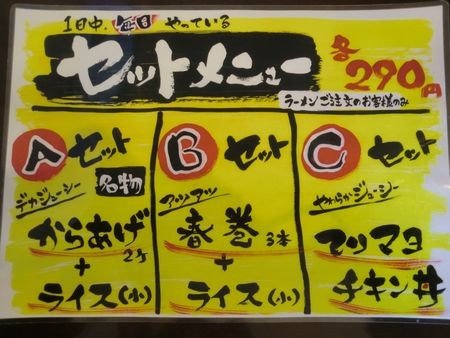 1日中、毎日 やっている
セットメニュー
各290円
ラーメンご注文のお客様のみ
A セット
名物
デカジューシー
からあげ
2ケ
+
ライス(小)
B セット
アツアツ
春巻 3本
+
ライス(小)
C セット
やわらかジューシー
テリマヨ
チキン丼